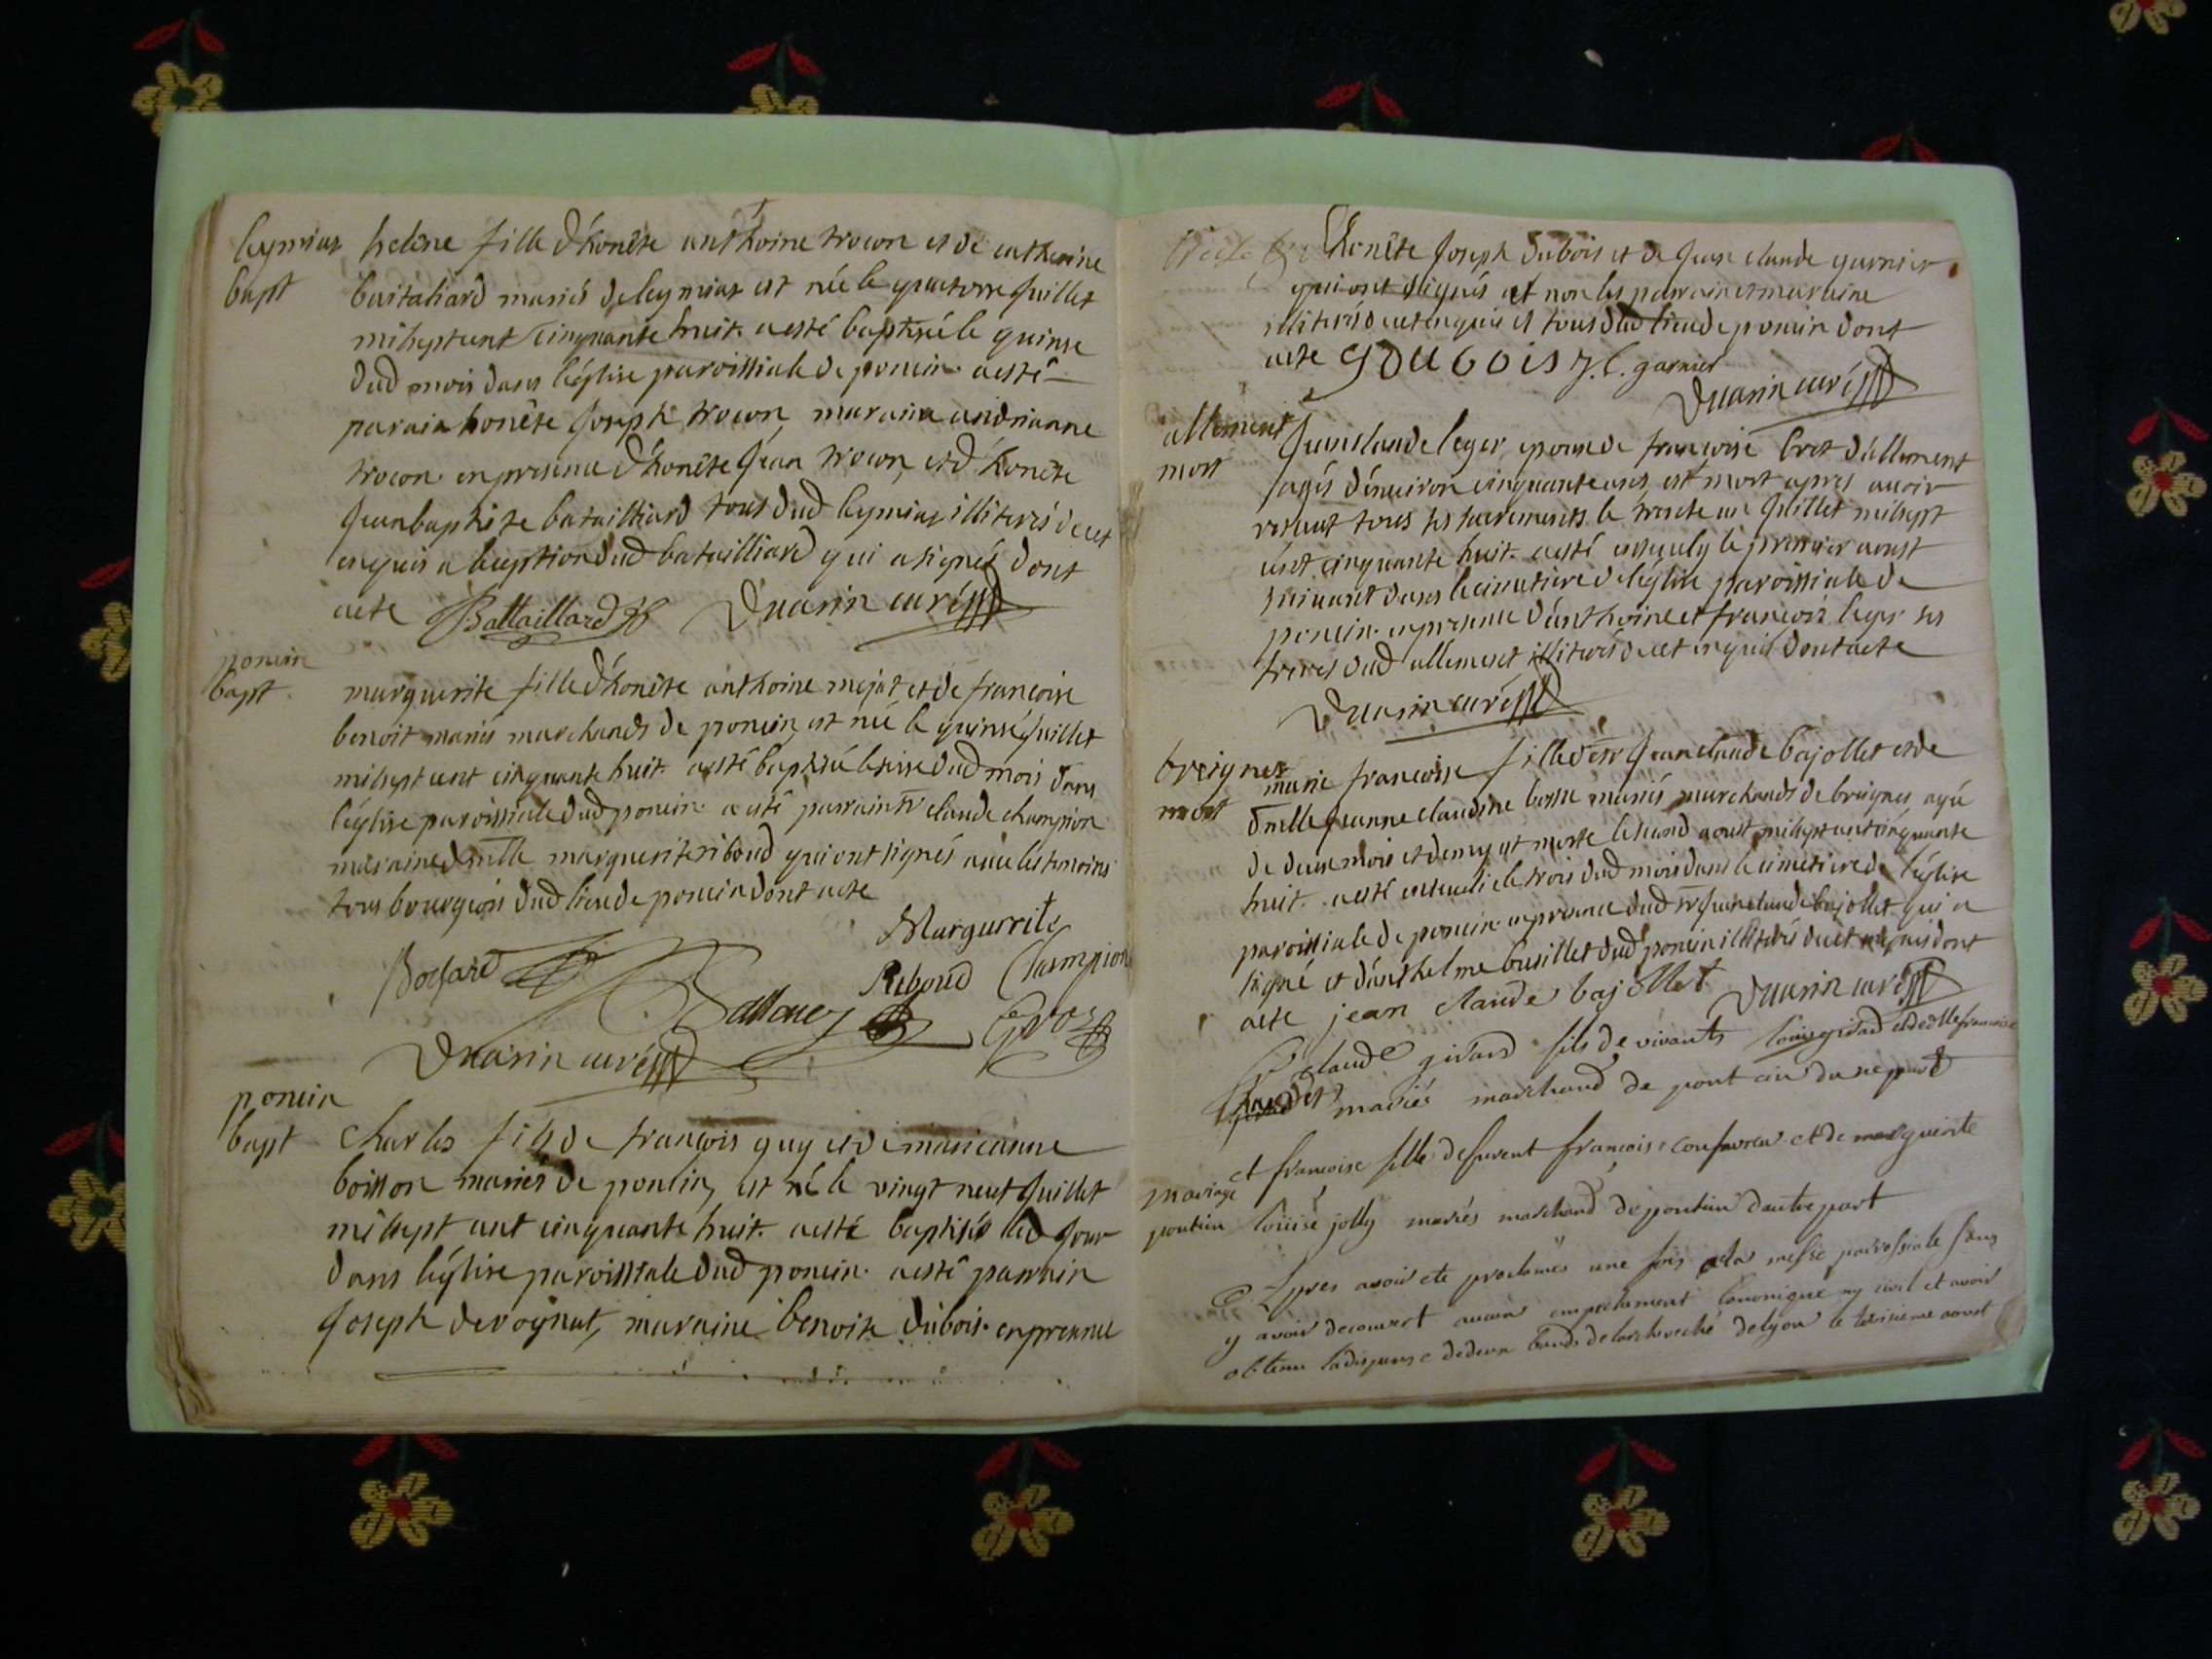 leymiat helene fille d'honête anthoine trocon et de catherine
bapt bataliard mariés de leymiat est née le quatorze juillet
mil sept cent cinquante huit. a esté baptisé le quinse
dud mois dans l'église paroissiale de poncin. a esté
parain honête joseph trocon, maraina andrianne
trocon. en presence d'honête jean trocon, et d'honête
jean baptiste batailliard tous dud leymiat illiterés de cet
enquis a l'eception dud batailliard qui a signés dont
acte Battaillard Duarin curé
poncin
bapt. marguerite fille d'honête anthoine mejat et de francoise
benoit mariés marchands de poncin est née le quinsé juillet
mil sept cent cinquante huit. a esté baptisé le seise dud mois dans
l'église paroissiale dud poncin. a esté parrain sr claude champion
maraine dmlle marguerite riboud qui ont signés avec les temoins
tous bourgeois dud lieu de poncin dont acte
Margueritte
Bochard Riboud Champion
Duarin curé
poncin
bapt charles fils de francois guy et de marie anne
boisson mariés de poncin, est né le vingt neuf juillet
mil sept cent cinquante huit. a esté baptisés led jour
dans l'église paroissiale dud poncin. a esté parrain
joseph devognat, maraine benoite dubois. en presence
d'honête joseph dubois et de jean claude garnier
qui ont signés et non les parrain et maraine
illiterés de cet enquis et tous dud lieu de poncin dont
acte J DUBOIS J. C. garnier
Duarin curé
allement jean claude leger, epoux de françoise bret d'allement
mort agés d'environ cinquante ans, est mort apres avoir
receut tous ses sacrements le trente un juillet mil sept
cent cinquante huit. a esté enseuely le premier aoust
suivant dans le cimetiere de l'église paroissiale de
poncin. en presence d'anthoine et françois leger ses
freres dud allement illiterés de cet enquis dont acte
Duarin curé
breignes marie francoise fille de sr jean claude bajollet et de
mort dmlle jeanne claudine bosse mariés marchands de breignes, agée
de deux mois et demy est morte le second aoust mil sept cent cinquante
huit. a esté enseveli le trois dud mois dans le cimetiere de l'église
paroissiale de poncin. en presence dud sr jean claude bajollet qui a
signé et d'anthelme busillet dud poncin illiterés de cet enquis dont
acte jean claude bajollet Duarin curé
Sr claude girard fils de vivants louis girard et de dlle francoise
mariés marchand de pont ain dune part
mariage et francoise fille de fuvent francois confavreu et de marguerite
pontin louise jolly mariés marchand de pontin dautre part
Apres avoir ete proclamés une fois a la messe paroissiale sans
y avoir decouvert aucun empechement canonique ny civil et avoir
obtenu la dispense de deux bands de larcheveché de lyon le troisieme aoust